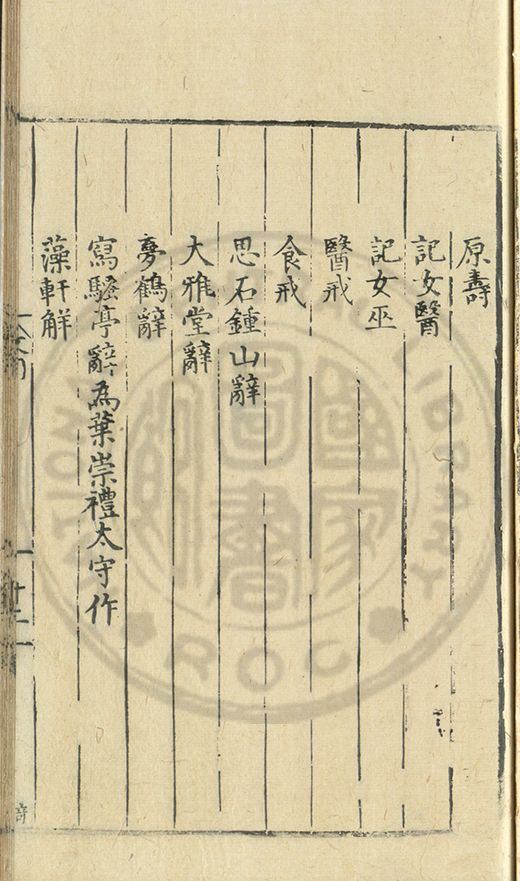 原壽
記女醫
記女巫
醫戒
食戒
思石鍾山辭
大雅堂辭
夣鶴辭
寫騷亭辭為葉崇禮太守作
藻軒解
國家圖書館